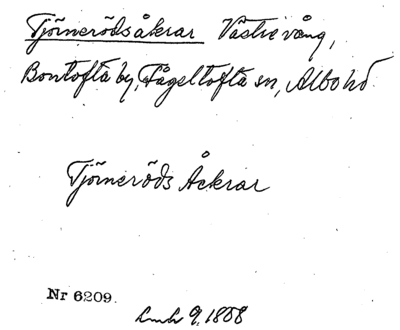 Tjörnerödsåkrar Västrevång,
Bontofta by, Fågeltofta sn, Albo hd
Tjörneröds Åckrar
Nr 6209.
Lmh 9, 1808